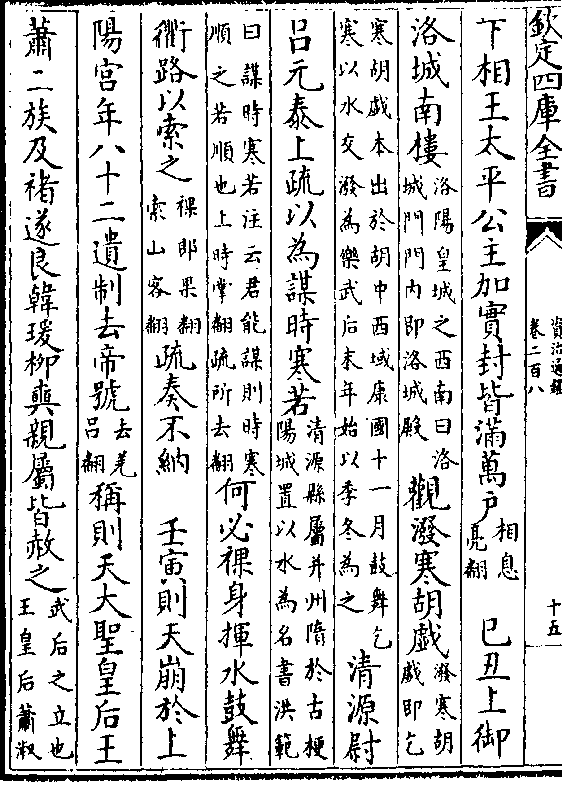 欽定四庫全書
資治通鑑
卷二百八
十五
下相王太平公主加實封皆滿萬戶相息亮翻 巳丑上御
洛城南樓洛陽皇城之西南曰洛城門門内即洛城殿觀潑寒胡戲潑寒胡戲即乞
寒胡戲本出於胡中西域康國十一月鼓舞乞寒以水交潑為樂武后末年始以季冬為之 清源尉
呂元泰上疏以為謀時寒若清源縣屬并州隋於古梗陽城置以水為名書洪範
曰謀時寒若注云君能謀則時寒順之若順也上時掌翻疏所去翻何必裸身揮水鼓舞
衢路以索之裸郎果翻索山客翻疏奏不納 壬寅則天崩於上
陽宫年八十二遺制去帝號去羌呂翻稱則天大聖皇后王
蕭二族及褚遂良韓瑗柳奭親屬皆赦之武后之立也王皇后蕭淑